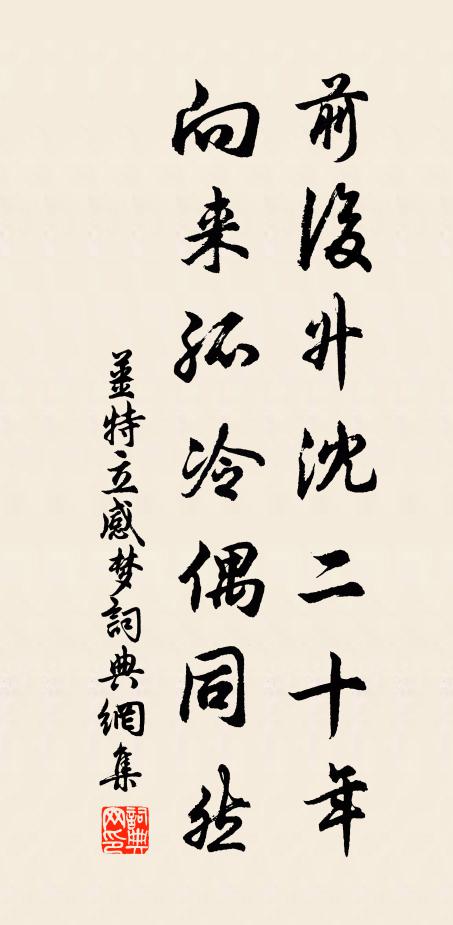 前後升沈二十年
向来孤冷偶同然
姜特立感梦詞典網集
詞典网印